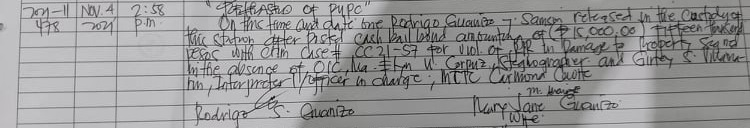 2021-11 NOV. 4 2:58 "RELEASED OF PUPC"
478 2021 p.m. On this time and date one Rodrigo Guanizo y Samson released in the custody of
this station after posted cash bail bond amounting of (₱15,000.00) fifteen thousand
pesos with Crim case # CC21-57 for viol. of RIR in Damage to Property signed
in the absence of OIC, Ma. W. Corpuz, Stenographer and S.
Interpreter I/officer in charge; MCTC Carmona Cavite
Rodrigo S. Guanizo Mary Jane Guanizo
Wife